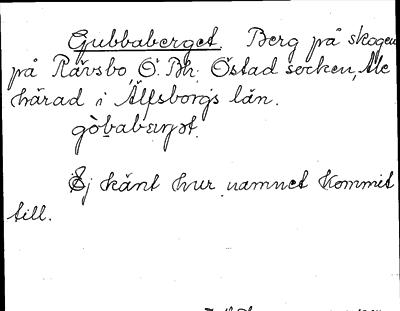 Gubbaberget. Berg på skogen
på Rävsbo Ö. Bh. Östad socken, Ale
härad i Älfsborgs län.
Ej känt hur namnet kommit
till.